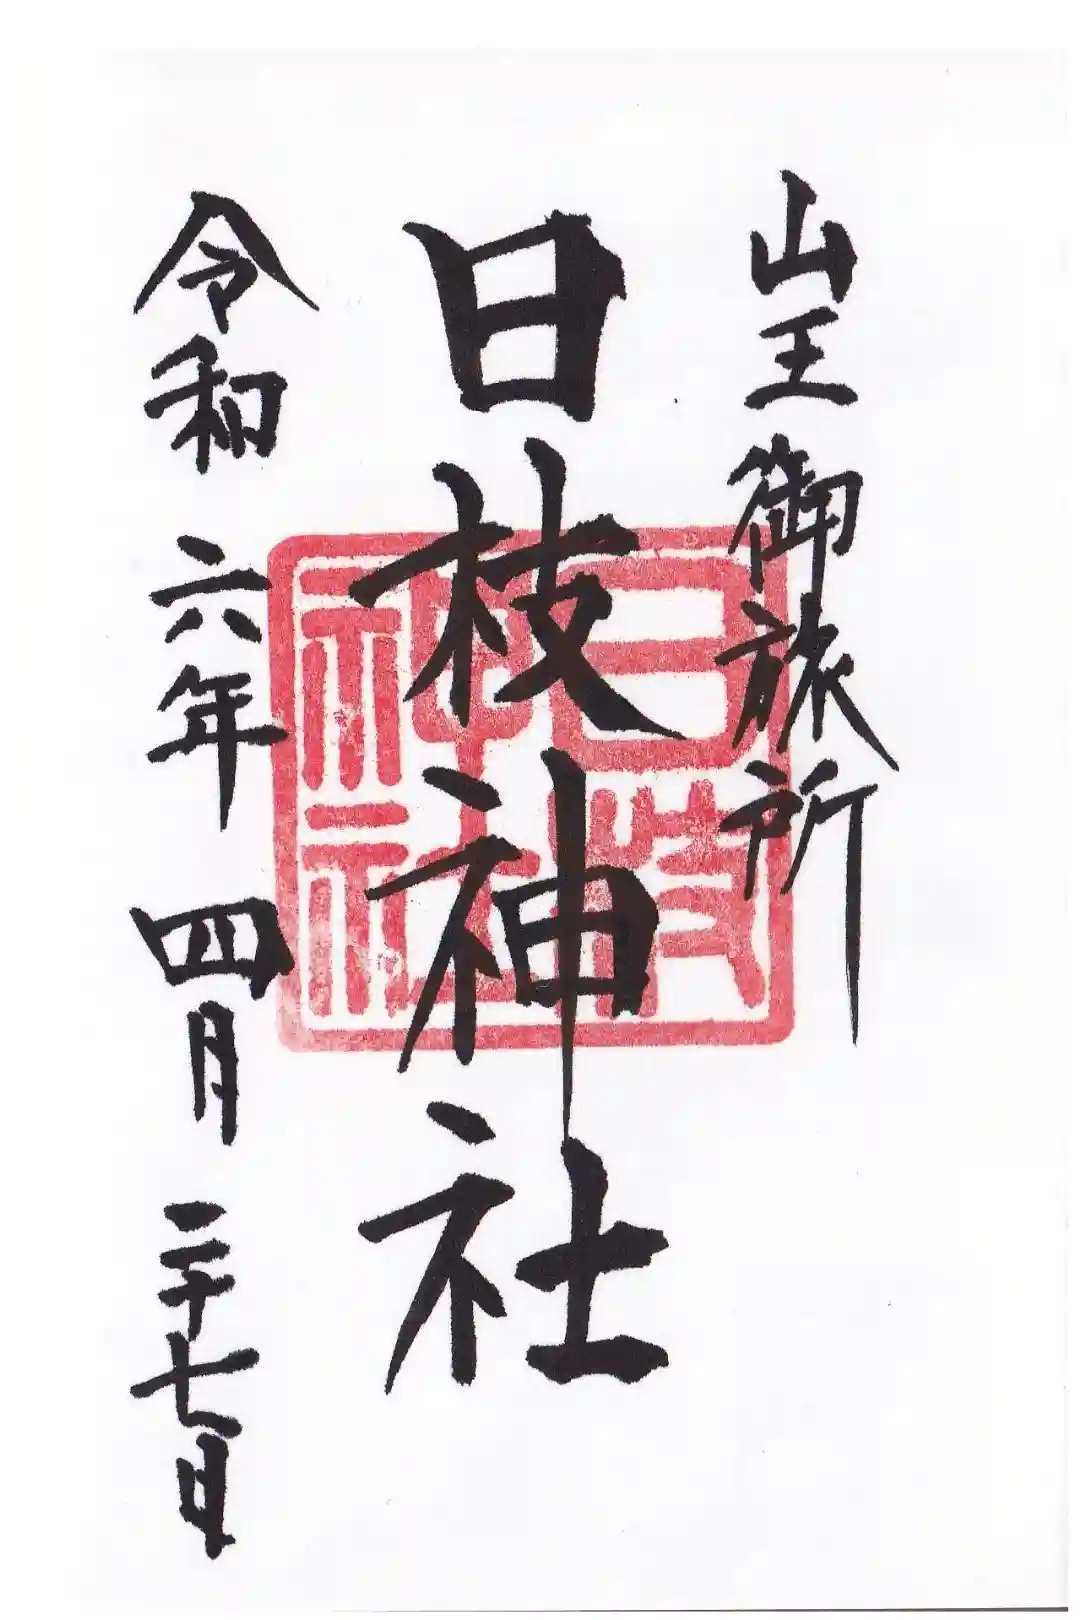 山王御旅所
日枝神社
日枝神社
令和六年四月二十七日